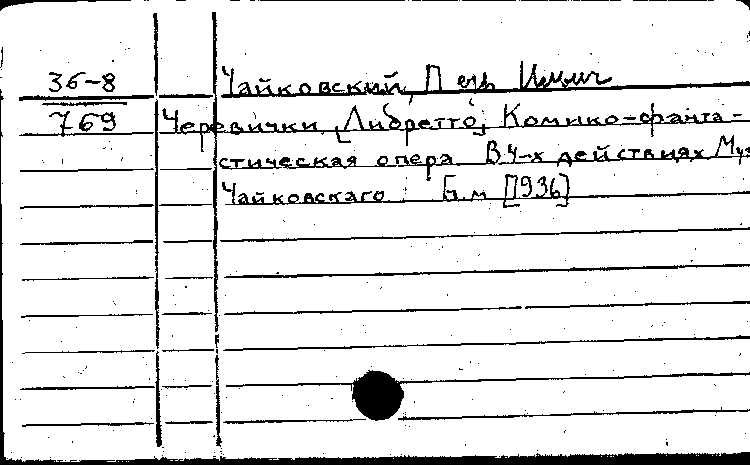 36-8
769
Чайковский, Петр Ильич
Черевички, [Либретто]. Комико-фанта-
стическая опера. В 4-х действиях Муз
Чайковскаго : Б.м [1936]